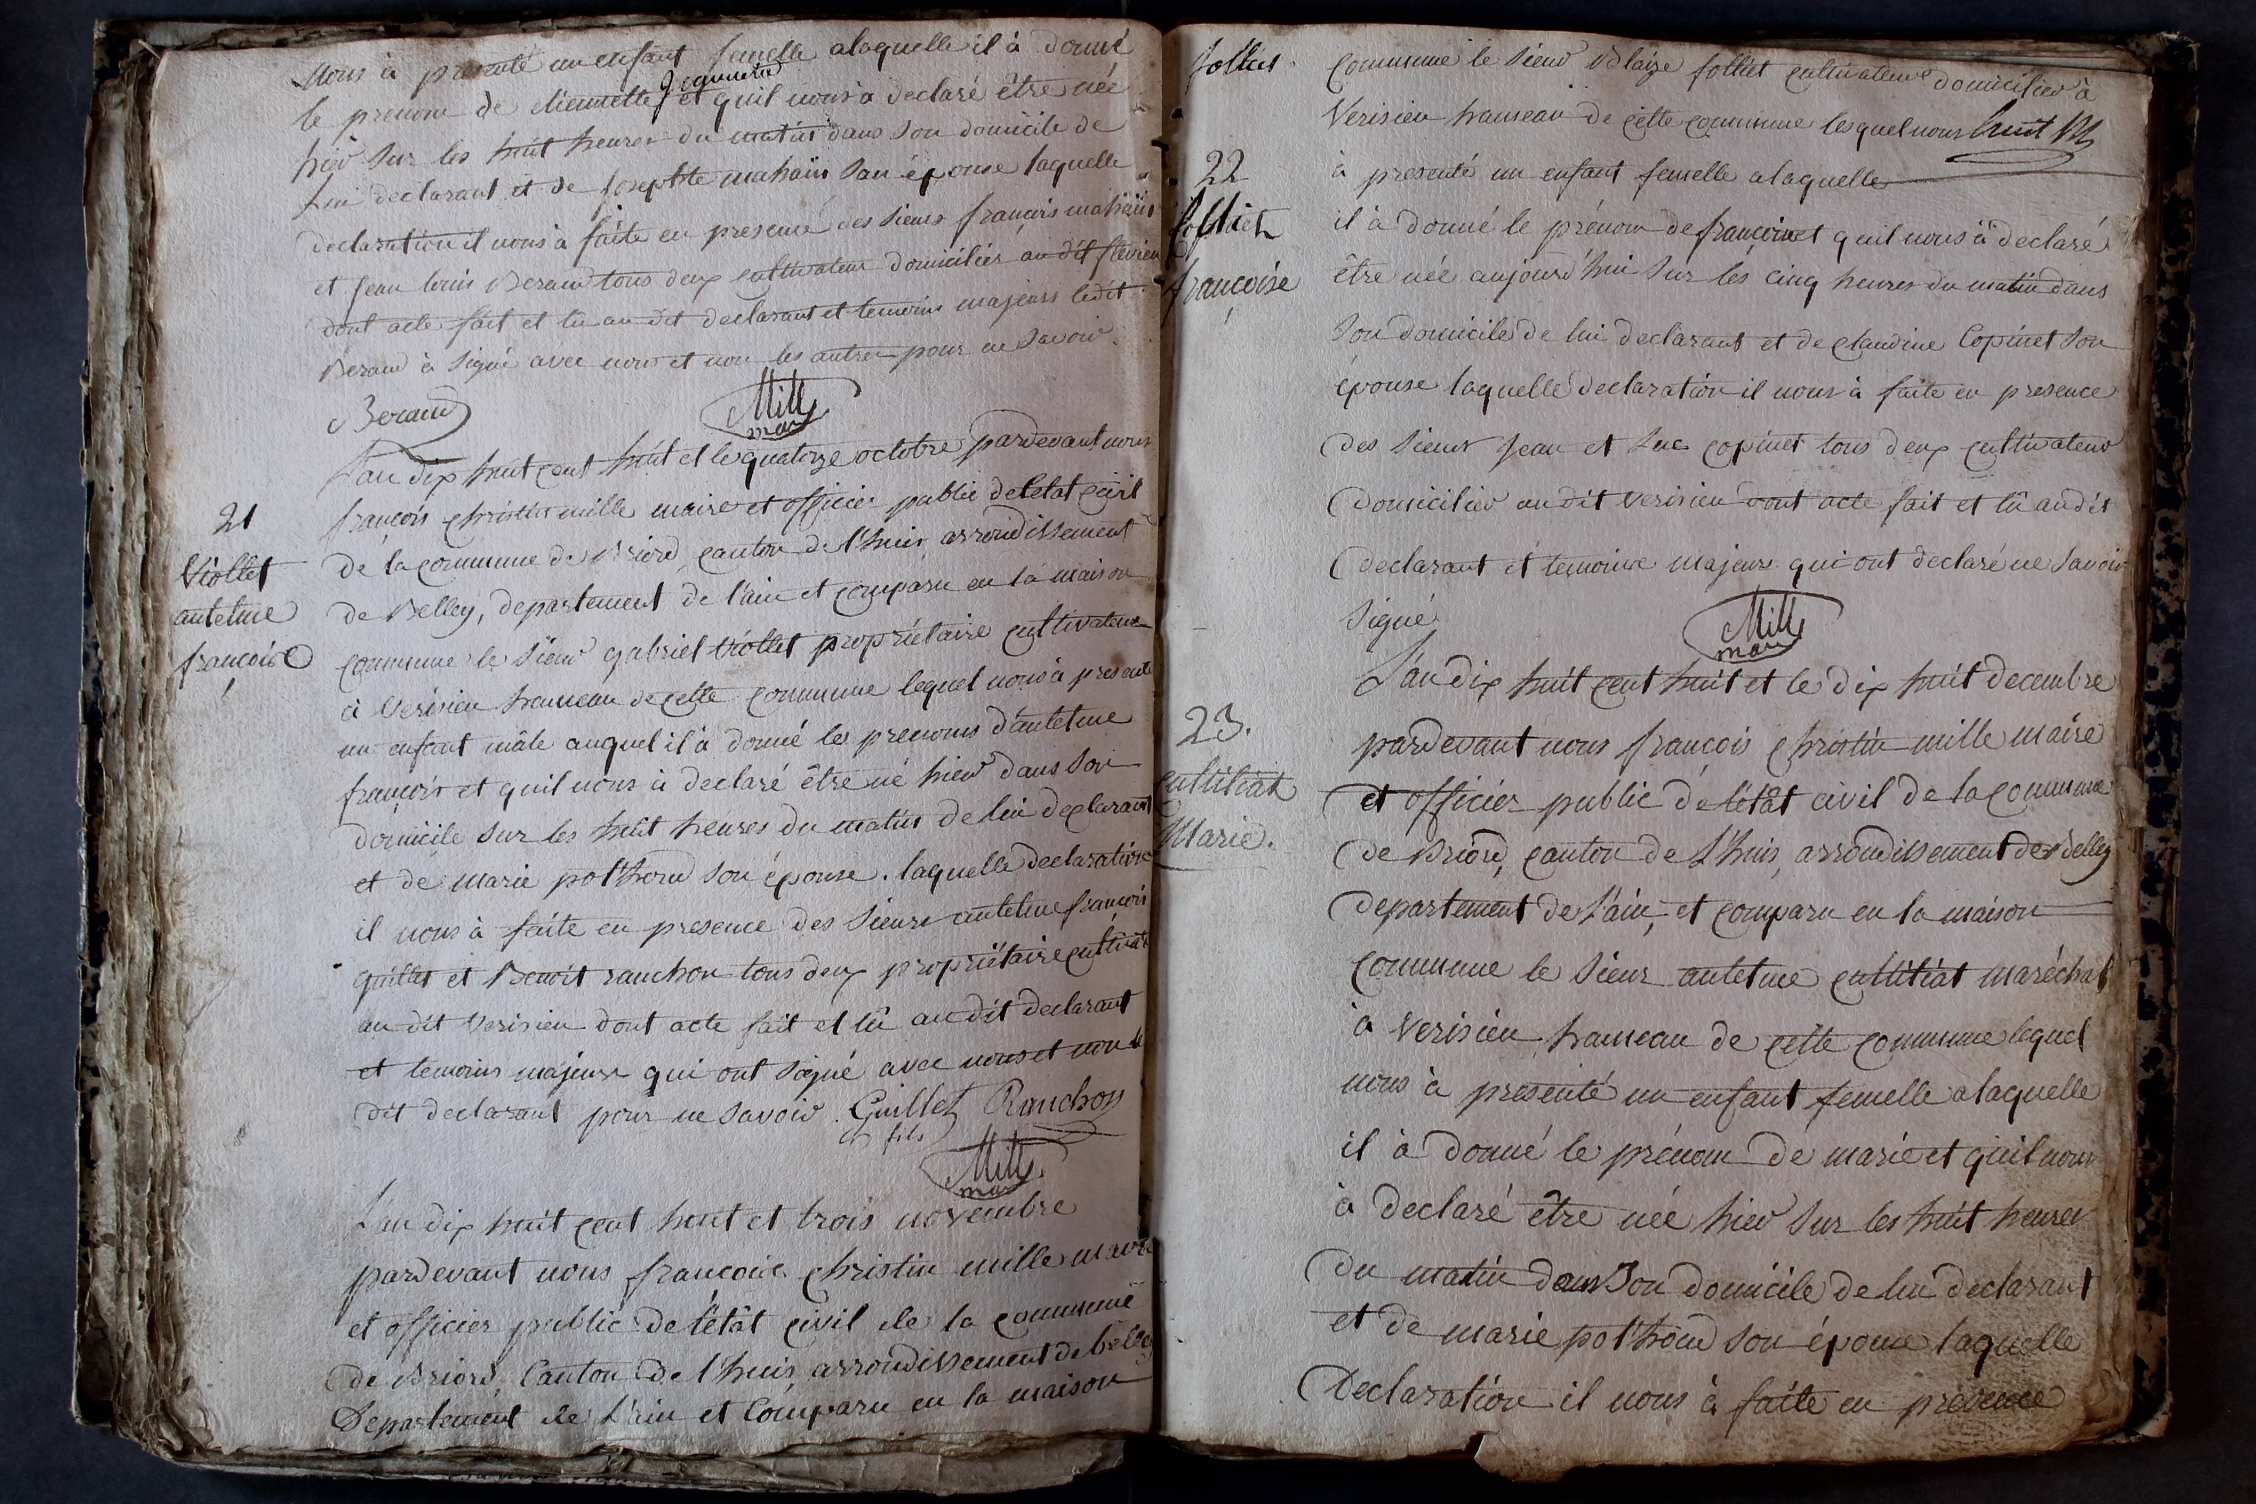 Nous à presenté un enfant femelle alaquelle il à donné
le prenom de et quil nous à declaré être née
hier sur les huit heures du matin dans son domicile de
lui declarant et de josephte mahaïn son épouse laquelle
declaration il nous à faite en presence des sieurs françois mahaïn
et jean louis Beraud tous deux cultivateur domiciliés au dit flevieu
dont acte fait et lû au dit declarant et temoins majeurs ledit
Beraud à signé avec nous et non les autres pour ne savoir.
Beraud
Mille
maire
21
Viollet
antelme
françois
L'an dix huit cent huit et le quatorze octobre pardevant nous
françois christin mille maire et officier public de létat civil
de la commune de Briord, canton de l'huis arrondissement
de Belley, departement de l'ain et comparu en la maison
commune le sieur gabriel Viollet propriétaire cultivateur
à Verisieu hameau de cette commune lequel nous à presenté
un enfant mâle auquel il à donné les prenoms d'antelme
françois et quil nous à declaré être né hier dans son
domicile sur les huit heures du matin de lui declarant
et de marie pol'hom̄d son épouse. laquelle declaration
il nous à faite en presence des sieurs antelme françois
guillet et Benoit ranchon tous deux propriétaire cultivat
au dit Verisieu dont acte fait et lû au dit declarant
et temoins majeurs qui ont signé avec nous et non le
dit declarant pour ne savoir. Guillet Ranchon
fils
Mille
maire
L'an dix huit cent huit et trois novembre
pardevant nous françois christin mille maire
et officier public de létât civil de la commune
de Briord, Canton de l'huis arrondissement de belley
Departement de L'ain et Comparu en la maison
folliet.
22
folliet
françoise
commune le sieur Blaize folliet cultivateur domicilier à
Verisieu hameau de cette commune lesquel nous huit M
à presenté un enfant femelle alaquelle
il à donné le prénom de françoise et quil nous à declaré
être née aujourd'hui sur les cinq heures du matin dans
son domicile de lui declarant et de claudine Copinet son
épouse laquelle declaration il nous à faite en presence
des sieurs jean et Luc copinet tous deux cultivateur
domicilier au dit verisieu dont acte fait et lû au dit
declarant et temoins majeurs qui ont declaré ne savoir
signé
Mille
maire
23.
cultitiat
Marie.
L'an dix huit cent huit et le dix huit decembre
pardevant nous françois christin mille maire
et officier public de létât civil de la commune
de Briord, canton de L'huis, arrondissement de Belley
departement de L'ain, et comparu en la maison
commune le sieur antelme cultitiat maréchal
à Verisieu hameau de cette commune lequel
nous à presenté un enfant femelle alaquelle
il à donné le prénom de marie et quil nous
à declaré être née hier sur les huit heures
du matin dans son domicile de lui declarant
et de marie pol'hom̄d son épouse laquelle
declaration il nous à faite en presence